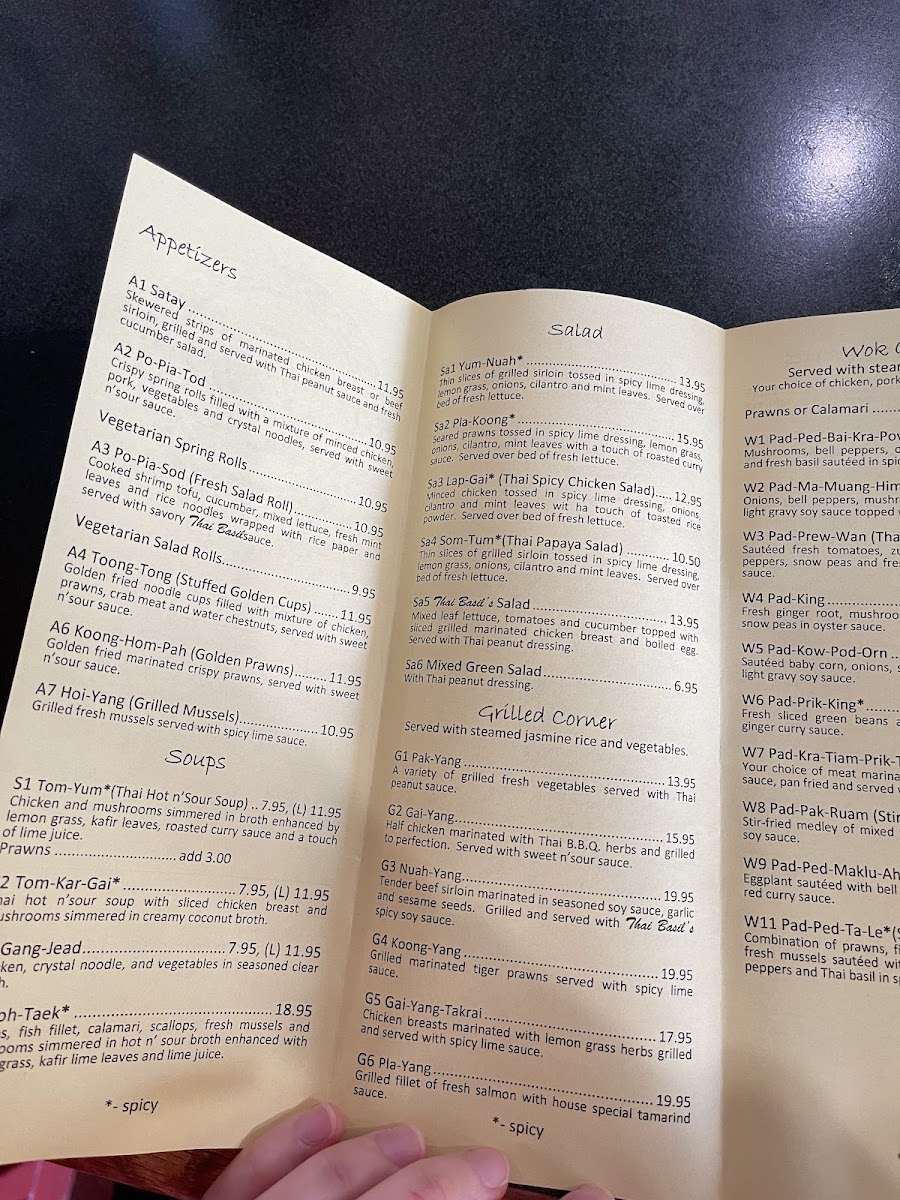 Appetizers
A1 Satay ........ 11.95
Skewered strips of marinated chicken breast or beef
sirloin, grilled and served with Thai peanut sauce and fresh
cucumber salad.
A2 Po-Pia-Tod ........ 10.95
Crispy spring rolls filled with a mixture of minced chicken,
pork, vegetables and crystal noodles, served with sweet
n'sour sauce.
Vegetarian Spring Rolls ........ 10.95
A3 Po-Pia-Sod (Fresh Salad Roll) ........ 10.95
Cooked shrimp tofu, cucumber, mixed lettuce, fresh mint
leaves and rice noodles wrapped with rice paper and
served with savory Thai Basil's sauce.
Vegetarian Salad Rolls ........ 9.95
A4 Toong-Tong (Stuffed Golden Cups) ...... 11.95
Golden fried noodle cups filled with mixture of chicken,
prawns, crab meat and water chestnuts, served with sweet
n'sour sauce.
A6 Koong-Hom-Pah (Golden Prawns) ........ 11.95
Golden fried marinated crispy prawns, served with sweet
n'sour sauce.
A7 Hoi-Yang (Grilled Mussels) ........ 10.95
Grilled fresh mussels served with spicy lime sauce.
Soups
S1 Tom-Yum*(Thai Hot n'Sour Soup) .. 7.95, (L) 11.95
Chicken and mushrooms simmered in broth enhanced by
lemon grass, kafir leaves, roasted curry sauce and a touch
of lime juice.
Prawns ........ add 3.00
2 Tom-Kar-Gai* ........ 7.95, (L) 11.95
hai hot n'sour soup with sliced chicken breast and
ushrooms simmered in creamy coconut broth.
Gang-Jead ........ 7.95, (L) 11.95
ken, crystal noodle, and vegetables in seasoned clear
h.
oh-Taek* ........ 18.95
s, fish fillet, calamari, scallops, fresh mussels and
ooms simmered in hot n' sour broth enhanced with
grass, kafir lime leaves and lime juice.
*- spicy
Salad
Sa1 Yum-Nuah* ........ 13.95
Thin slices of grilled sirloin tossed in spicy lime dressing,
lemon grass, onions, cilantro and mint leaves. Served over
bed of fresh lettuce.
Sa2 Pla-Koong* ........ 15.95
Seared prawns tossed in spicy lime dressing, lemon grass,
onions, cilantro, mint leaves with a touch of roasted curry
sauce. Served over bed of fresh lettuce.
Sa3 Lap-Gai* (Thai Spicy Chicken Salad).... 12.95
Minced chicken tossed in spicy lime dressing, onions,
cilantro and mint leaves wit ha touch of toasted rice
powder. Served over bed of fresh lettuce.
Sa4 Som-Tum*(Thai Papaya Salad) ........ 10.50
Thin slices of grilled sirloin tossed in spicy lime dressing,
lemon grass, onions, cilantro and mint leaves. Served over
bed of fresh lettuce.
Sa5 Thai Basil's Salad ........ 13.95
Mixed leaf lettuce, tomatoes and cucumber topped with
sliced grilled marinated chicken breast and boiled egg.
Served with Thai peanut dressing.
Sa6 Mixed Green Salad ........ 6.95
With Thai peanut dressing.
Grilled Corner
Served with steamed jasmine rice and vegetables.
G1 Pak-Yang ........ 13.95
A variety of grilled fresh vegetables served with Thai
peanut sauce.
G2 Gai-Yang ........ 15.95
Half chicken marinated with Thai B.B.Q. herbs and grilled
to perfection. Served with sweet n'sour sauce.
G3 Nuah-Yang ........ 19.95
Tender beef sirloin marinated in seasoned soy sauce, garlic
and sesame seeds. Grilled and served with Thai Basil's
spicy soy sauce.
G4 Koong-Yang ........ 19.95
Grilled marinated tiger prawns served with spicy lime
sauce.
G5 Gai-Yang-Takrai ........ 17.95
Chicken breasts marinated with lemon grass herbs grilled
and served with spicy lime sauce.
G6 Pla-Yang ........ 19.95
Grilled fillet of fresh salmon with house special tamarind
sauce.
*- spicy
Wok
Served with steam
Your choice of chicken, pork
Prawns or Calamari ........
W1 Pad-Ped-Bai-Kra-Pov
Mushrooms, bell peppers, o
and fresh basil sautéed in spic
W2 Pad-Ma-Muang-Him
Onions, bell peppers, mushr
light gravy soy sauce topped w
W3 Pad-Prew-Wan (Tha
Sautéed fresh tomatoes, zu
peppers, snow peas and fres
sauce.
W4 Pad-King ........
Fresh ginger root, mushroo
snow peas in oyster sauce.
W5 Pad-Kow-Pod-Orn ..
Sautéed baby corn, onions, s
light gravy soy sauce.
W6 Pad-Prik-King* ........
Fresh sliced green beans a
ginger curry sauce.
W7 Pad-Kra-Tiam-Prik-T
Your choice of meat marina
sauce, pan fried and served w
W8 Pad-Pak-Ruam (Stir
Stir-fried medley of mixed
soy sauce.
W9 Pad-Ped-Maklu-Ah
Eggplant sautéed with bell
red curry sauce.
W11 Pad-Ped-Ta-Le*(S
Combination of prawns, fi
fresh mussels sautéed wit
peppers and Thai basil in sp